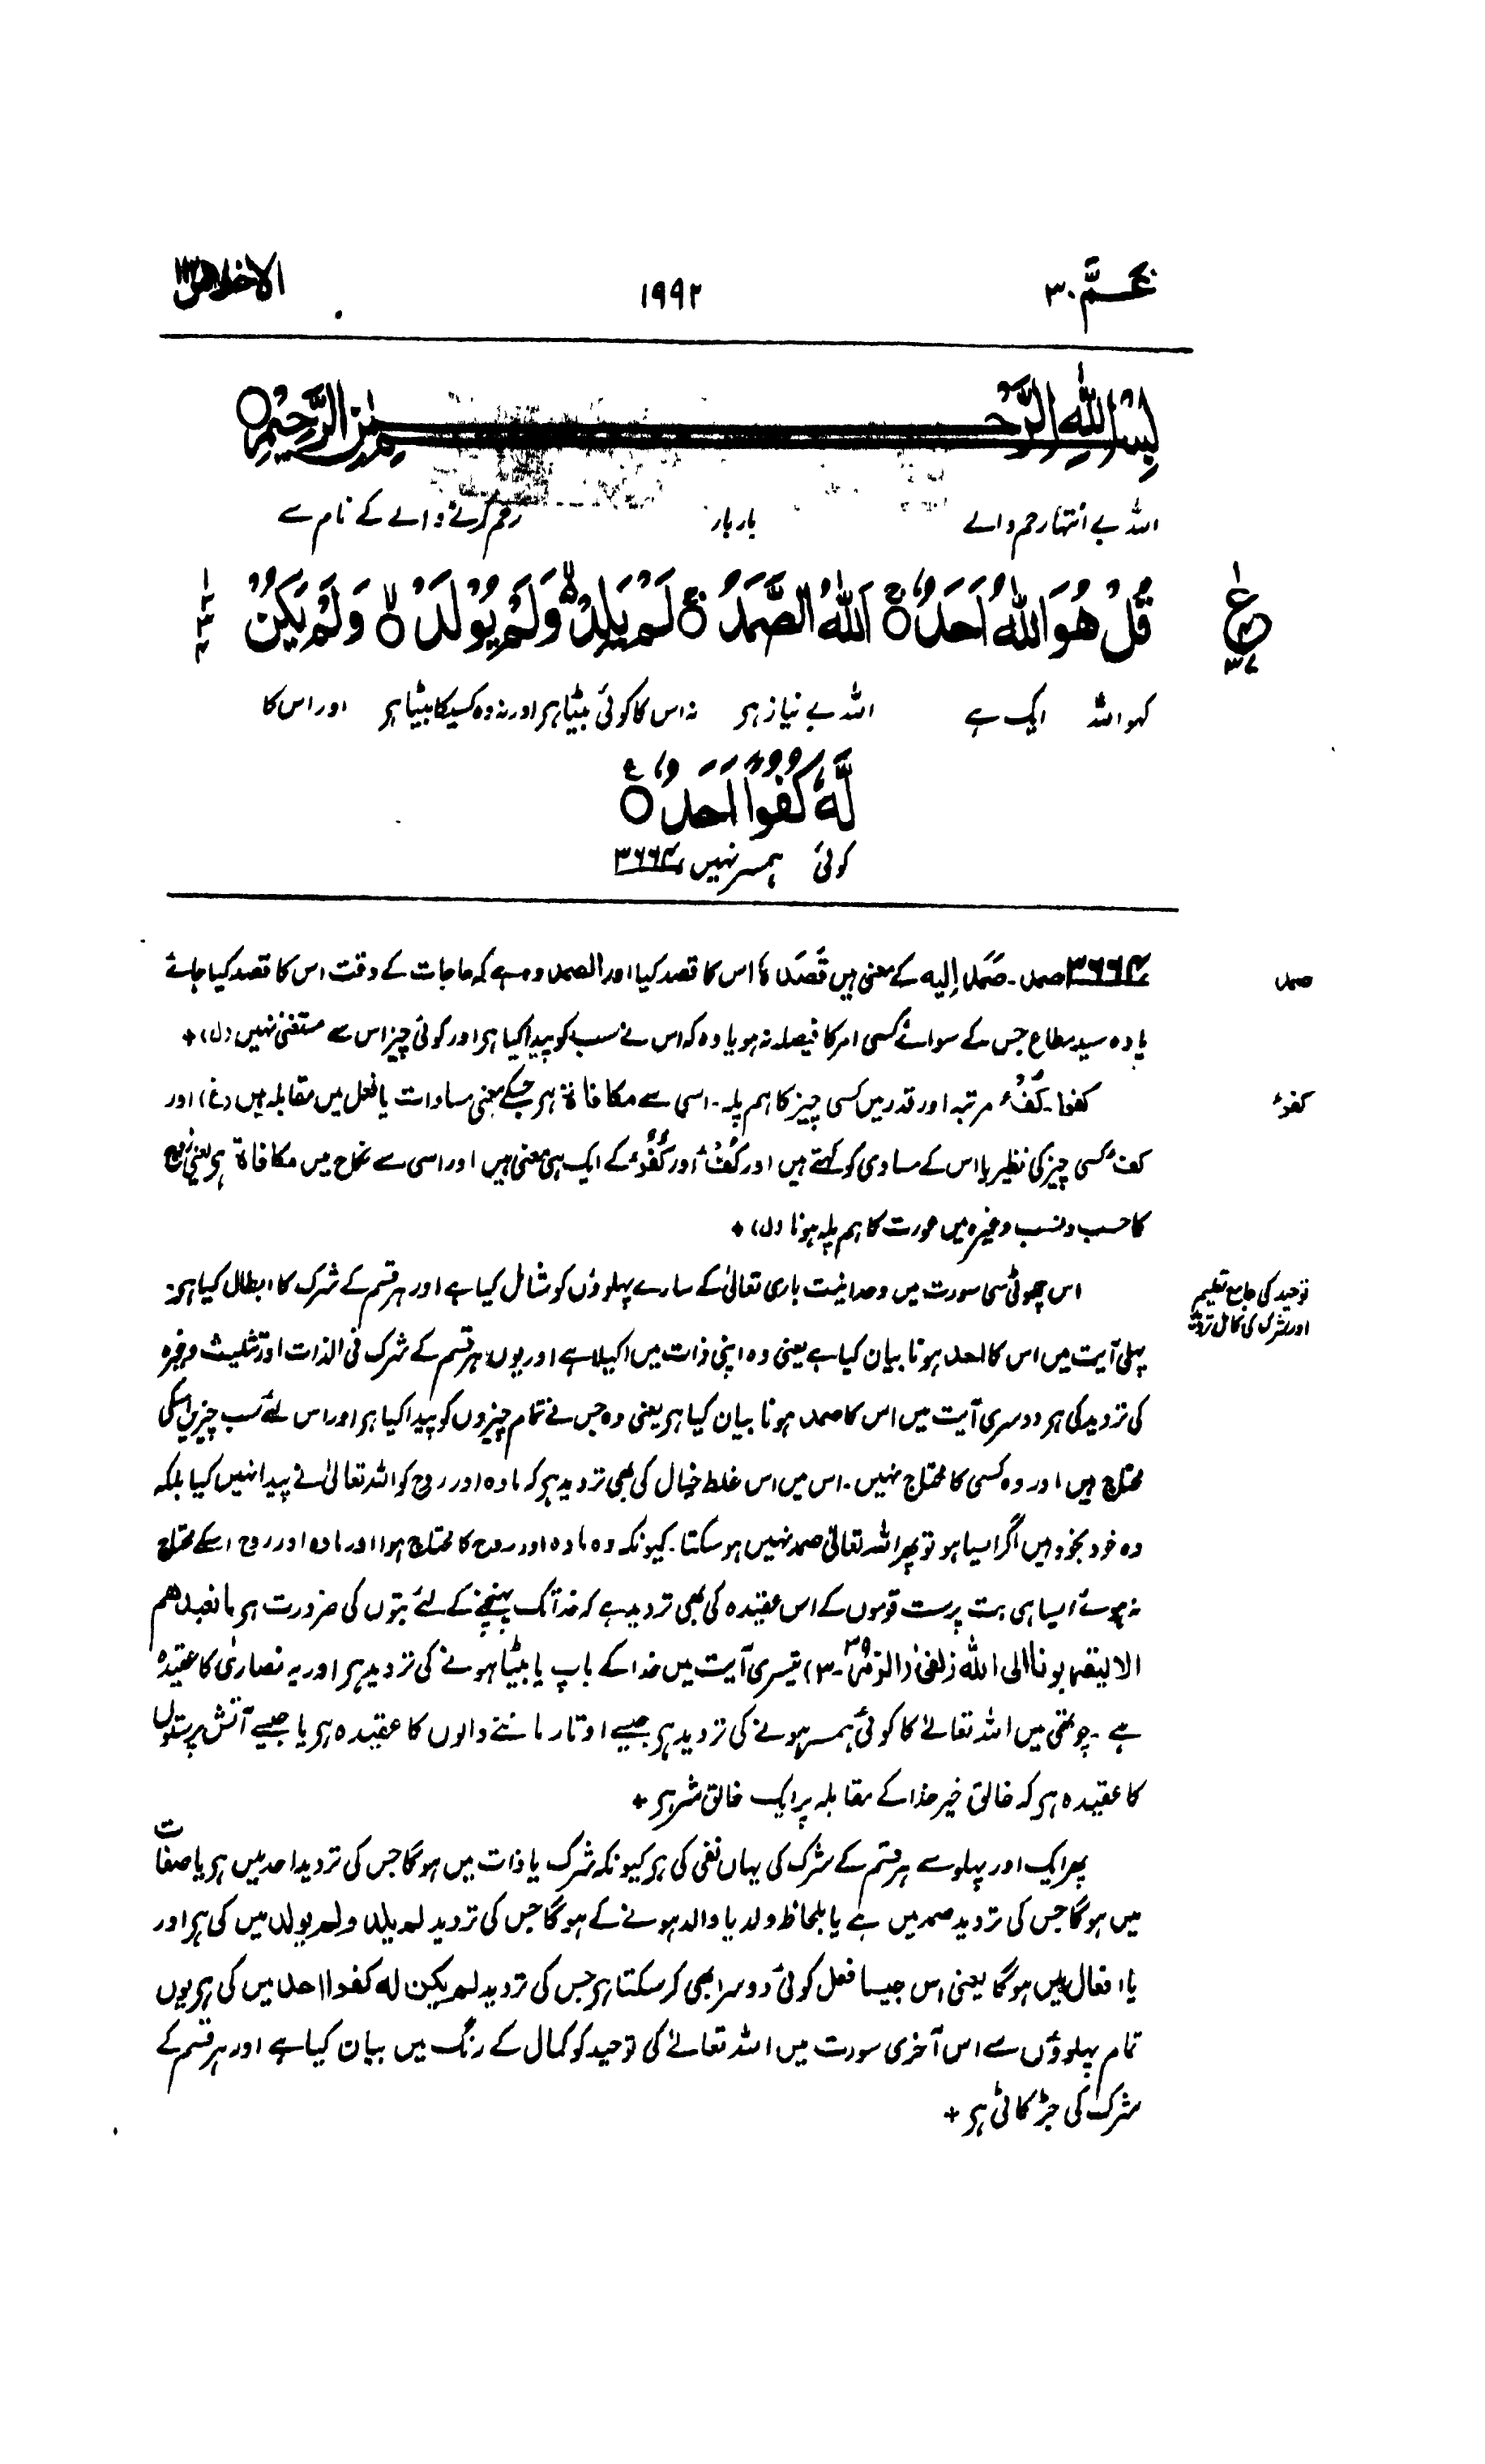 عمّ ۳۰
۱۹۹۲
الاخلاص
بِسْمِ اللّٰهِ الرَّحْمٰنِ الرَّحِيْمِ ○
اللہ بے انتہا رحم والے بار بار رحم کرنے والے کے نام سے
قُلْ هُوَ اللّٰهُ اَحَدٌ ○ اَللّٰهُ الصَّمَدُ ○ لَمْ يَلِدْ وَلَمْ يُوْلَدْ ○ وَلَمْ يَكُنْ
کہو اللہ ایک ہے اللہ بے نیاز ہر نہ اس کا کوئی بیٹا ہر اور نہ وہ کسیکا بیٹا ہر اور اس کا
لَّهٗ كُفُوًا اَحَدٌ ○
کوئی ہمسر نہیں ۳۶۶۴
صمد
۳۶۶۴ صمد۔ صَمَد اِلیه کے معنی ہیں قَصَدَ اس کا قصد کیا اور الصمد وہ ہے کہ حاجات کے وقت اس کا قصد کیا جائے
یا وہ سید مطاع جس کے سوائے کسی امر کا فیصلہ نہ ہو یا وہ کہ اس نے سب کو پیدا کیا ہر اور کوئی چیز اس سے مستغنی نہیں (ل) +
کفوء
کفوا۔ کُفُء مرتبہ اور قدر میں کسی چیز کا ہم پلہ۔ اسی سے مکافاة ہر جسکے معنی مساوات یا فعل میں مقابلہ ہیں (غ) اور
کفء کسی چیز کی نظیر یا اس کے مساوی کو کہتے ہیں اور کُفُء اور کُفُوء کے ایک ہی معنی ہیں اور اسی سے نکاح میں مکافاة ہر یعنی زوج
کا حسب ونسب وغیرہ میں عورت کا ہم پلہ ہونا (ل) +
توحید کی جامع تعلیم
اور شرک کی کامل تردید
اس چھوٹی سی سورت میں وحدانیت باری تعالیٰ کے سارے پہلوؤں کو شامل کیا ہے اور ہر قسم کے شرک کا ابطال کیا ہر۔
پہلی آیت میں اس کا احد ہونا بیان کیا ہے یعنی وہ اپنی ذات میں اکیلا ہے اور یوں ہر قسم کے شرک فی الذات اور تثلیث وغیرہ
کی تردید کی ہر دوسری آیت میں اس کا صمد ہونا بیان کیا ہر یعنی وہ جس نے تمام چیزوں کو پیدا کیا ہر اور اس لئے سب چیزیں اسکی
محتاج ہیں اور وہ کسی کا محتاج نہیں۔ اس میں اس غلط خیال کی بھی تردید ہر کہ مادہ اور روح کو اللہ تعالیٰ نے پیدا نہیں کیا بلکہ
وہ خود بخود ہیں اگر ایسا ہو تو پھر اللہ تعالیٰ صمد نہیں ہوسکتا۔ کیونکہ وہ مادہ اور روح کا محتاج ہوا اور مادہ اور روح اسکے محتاج
نہ ہوئے ایسا ہی بت پرست قوموں کے اس عقیدہ کی بھی تردید ہے کہ خدا تک پہنچنے کے لئے بتوں کی ضرورت ہر ما نعبدهم
الا ليقربونا الى الله زلفى (الزمر ۳۹-۳) تیسری آیت میں خدا کے باپ یا بیٹا ہونے کی تردید ہر اور یہ نصاریٰ کا عقیدہ
ہے۔ چوتھی میں اللہ تعالےٰ کا کوئی ہمسر ہونے کی تردید ہر جیسے اوتار ماننے والوں کا عقیدہ ہر یا جیسے آتش پرستوں
کا عقیدہ ہر کہ خالق خیر خدا کے مقابلہ پر ایک خالق شر ہر +
پھر ایک اور پہلو سے ہر قسم کے شرک کی یہاں نفی کی ہر کیونکہ شرک یا ذات میں ہوگا جس کی تردید احد میں ہر یا صفات
میں ہوگا جس کی تردید صمد میں ہے یا بلحاظ ولد یا والد ہونے کے ہوگا جس کی تردید لم یلد ولم یولد میں کی ہر اور
یا افعال میں ہوگا یعنی اس جیسا فعل کوئی دوسرا بھی کرسکتا ہر جس کی تردید لم یکن له کفوا احد میں کی ہر یوں
تمام پہلوؤں سے اس آخری سورت میں اللہ تعالےٰ کی توحید کو کمال کے رنگ میں بیان کیا ہے اور ہر قسم کے
شرک کی جڑ کاٹی ہر +